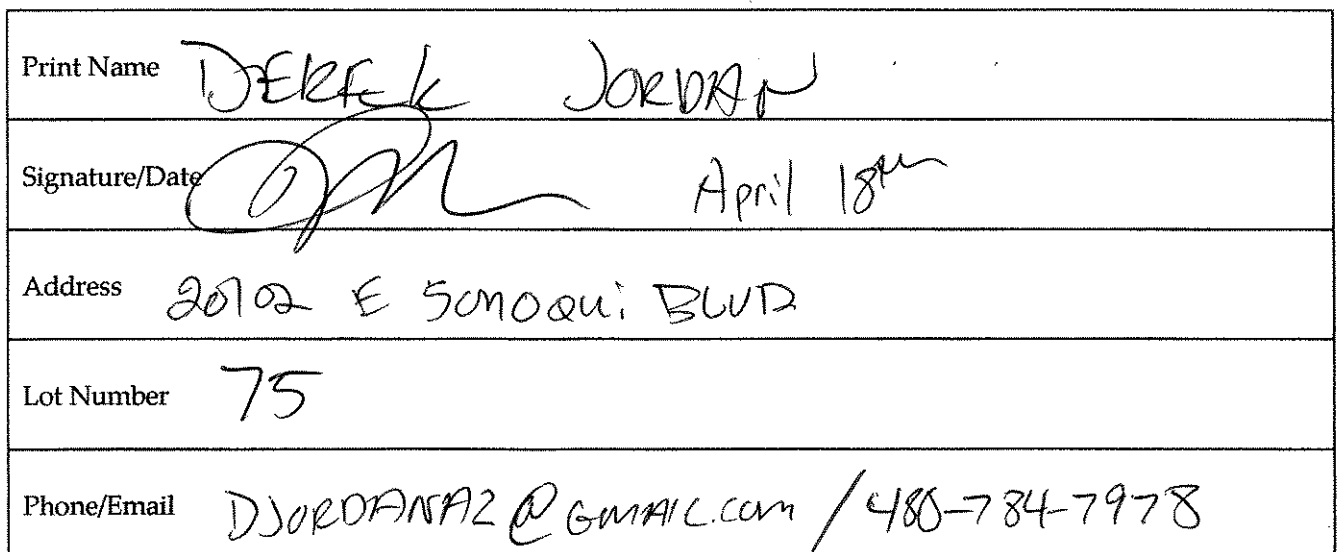 Print Name DEREK JORDAN
Signature/Date April 18th
Address 20702 E SONOQUI BLVD
Lot Number 75
Phone/Email DJORDANAZ@GMAIL.com / 480-784-7978